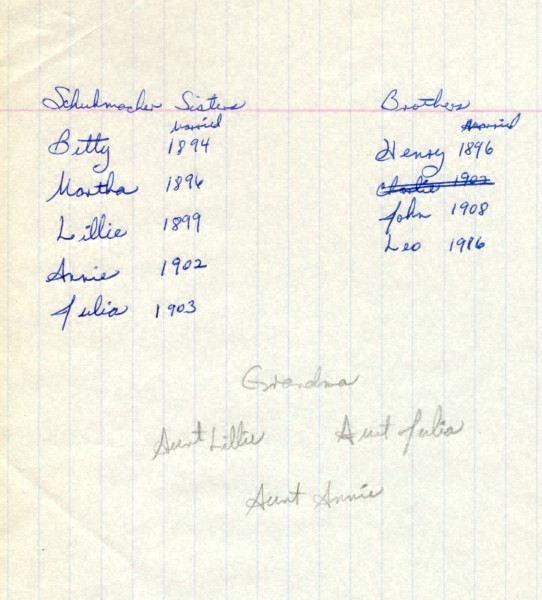 Schuhmacher Sisters
Married
Betty 1894
Martha 1896
Lillie 1899
Annie 1902
Julia 1903
Brothers
Married
Henry 1896
Charlie 1902
John 1908
Leo 1916
Grandma
Aunt Lillie Aunt Julia
Aunt Annie